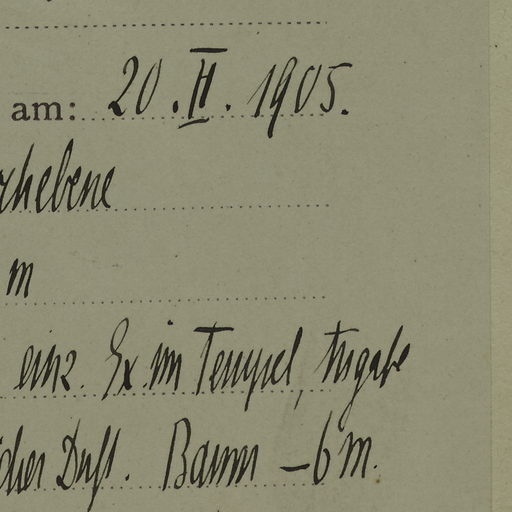 am: 20. II. 1905.
rhebene
m
einz. Ex. im Tempel, Angabe
cher Duft. Baum – 6 m.